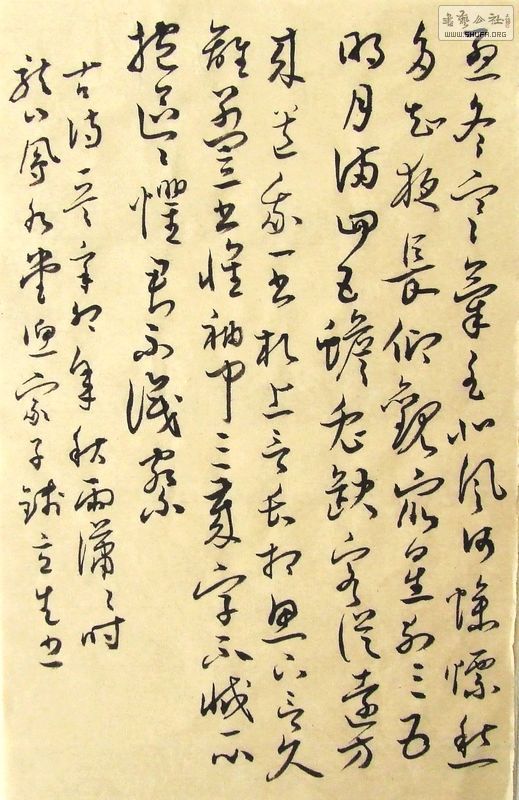 書藝公社
WWW.SHUFA.ORG
孟冬寒氣至北風何慘慄愁
多知夜長仰觀眾星列三五
明月滿四五蟾兔缺客從遠方
來遺我一書札上言長相思下言久
離別置書懷袖中三歲字不滅一心
抱區々懼君不識察
古詩一首辛卯年秋雨瀟々時
龍山鳳水堂家子立生書